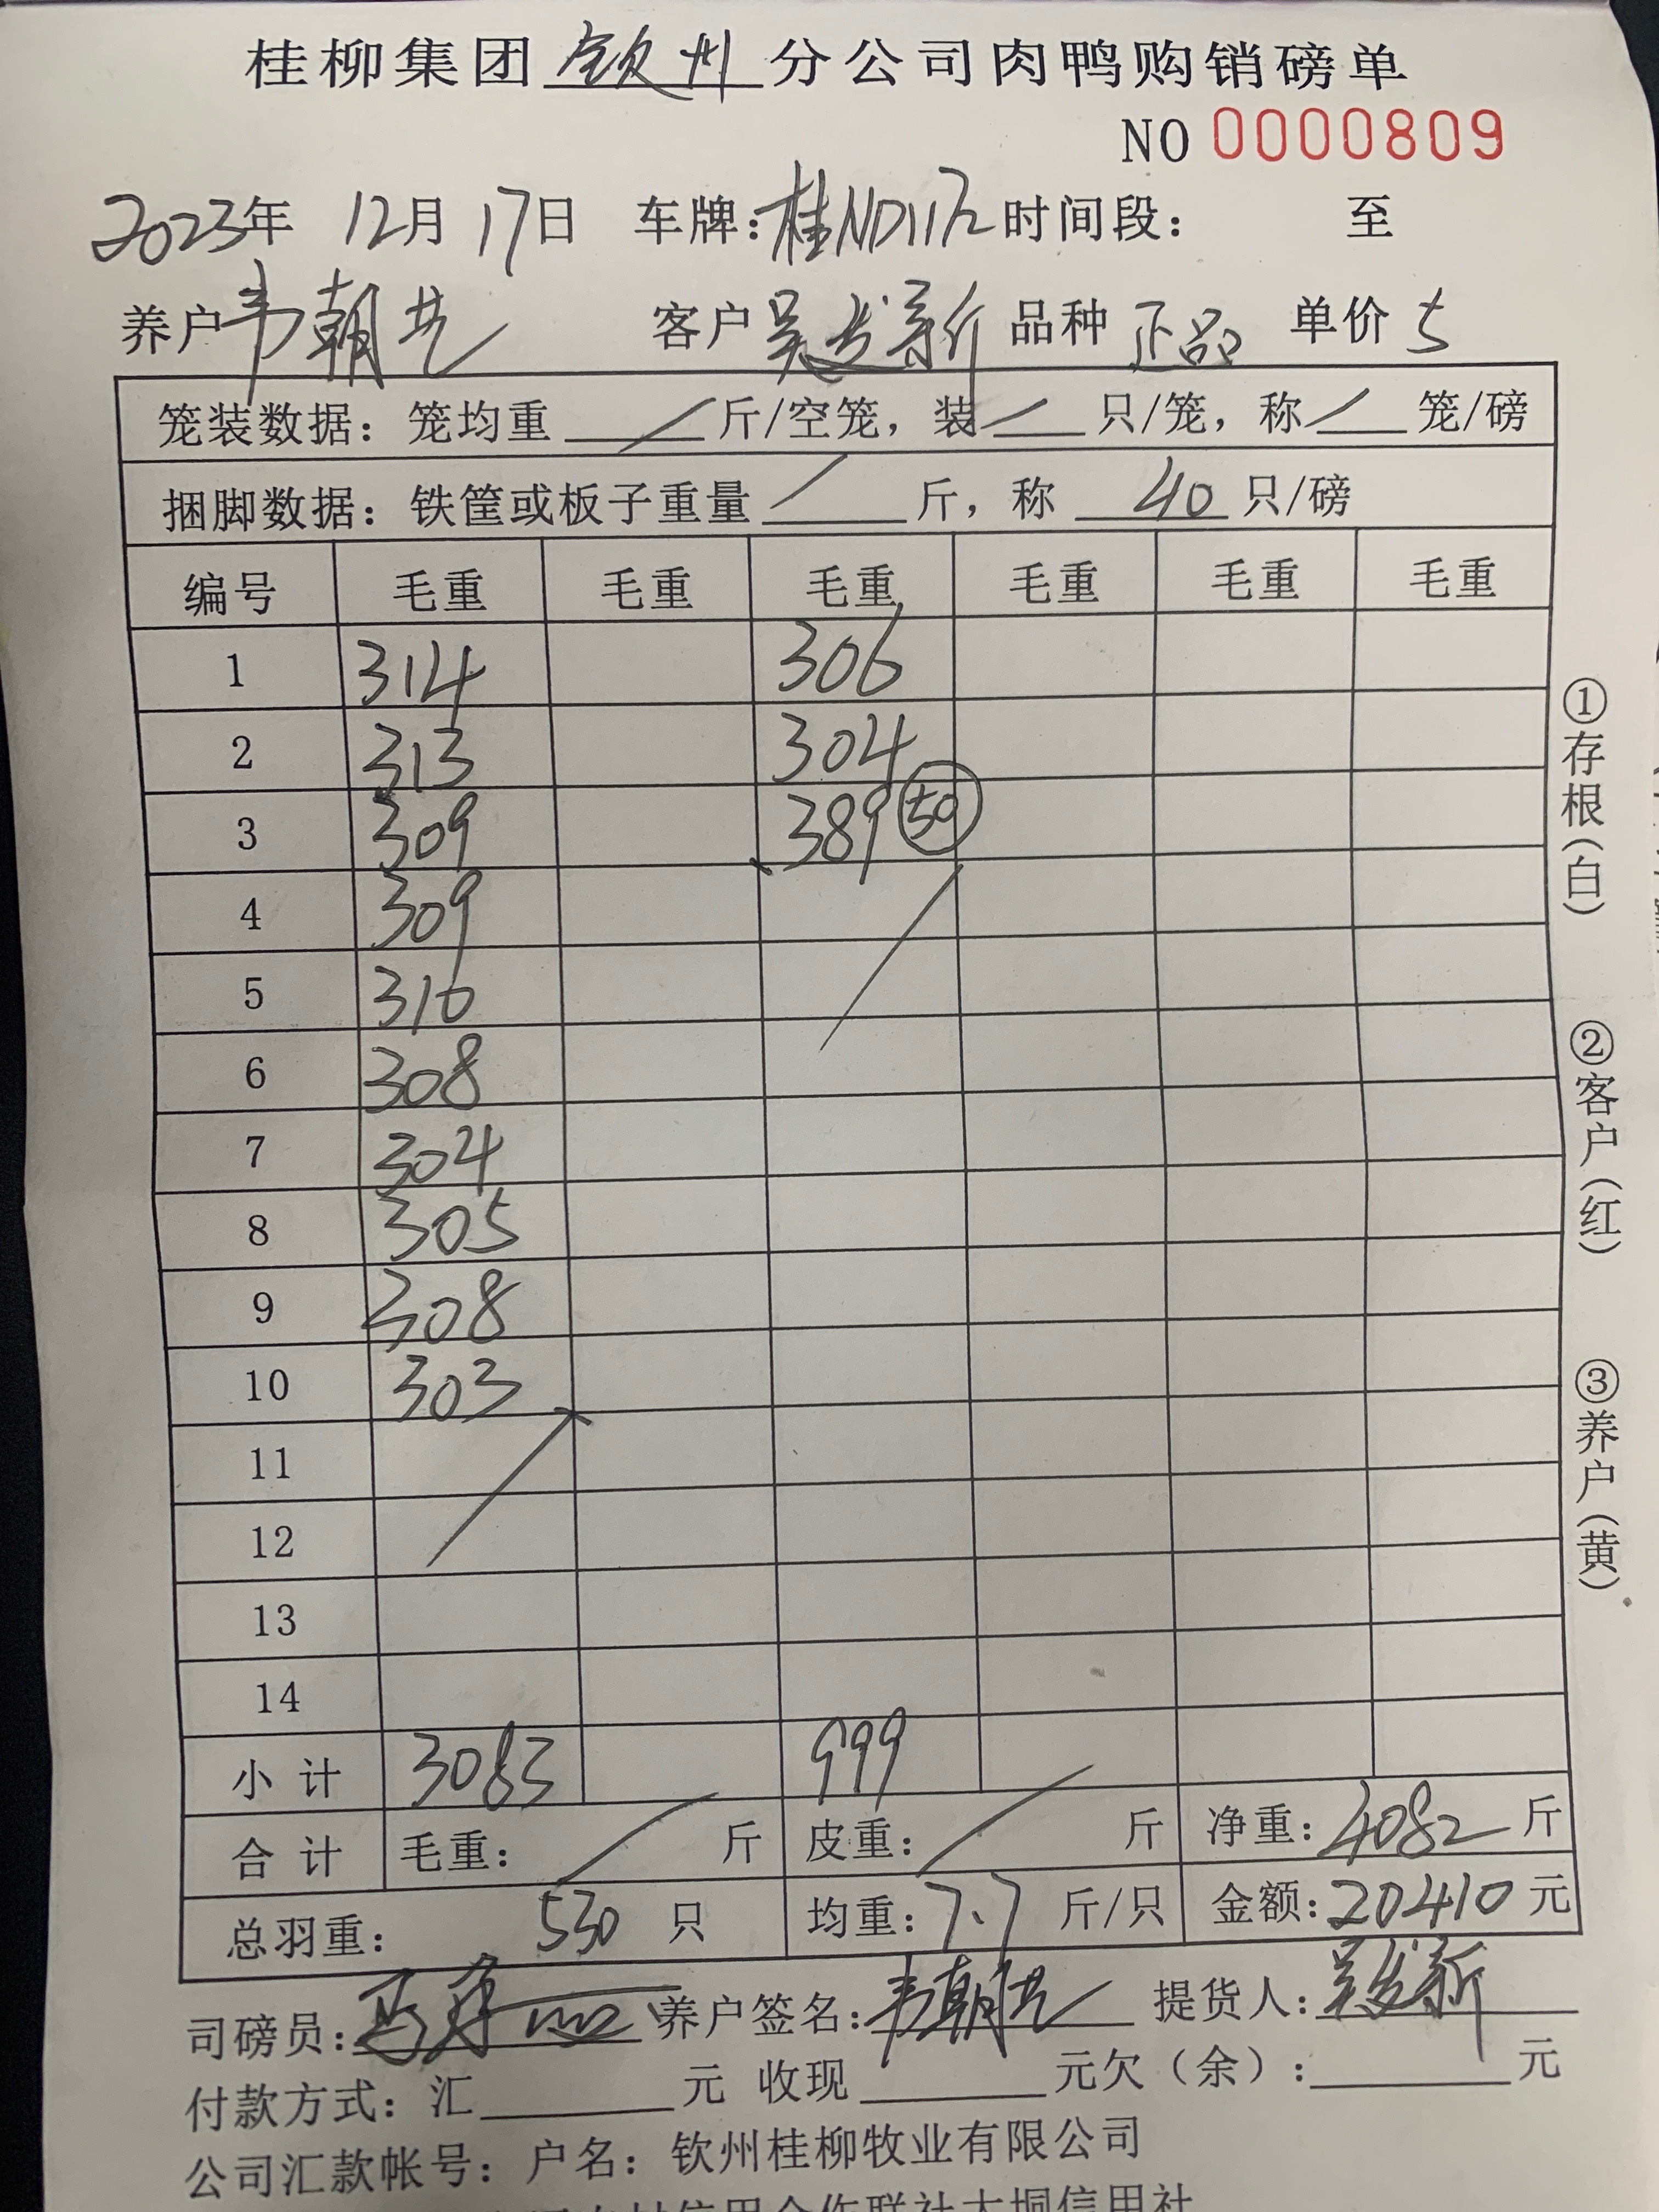 桂柳集团钦州分公司肉鸭购销磅单
NO 0000809
2023年 12月 17日 车牌: 时间段: 至
养户韦朝 客户吴 新 品种 正品 单价 5
笼装数据: 笼均重 / 斤/空笼, 装 / 只/笼, 称 / 笼/磅
捆脚数据: 铁筐或板子重量 / 斤, 称 40 只/磅
编号 毛重 毛重 毛重 毛重 毛重 毛重
1 314 306
2 313 304
3 309 389 50
4 309
5 310
6 308
7 304
8 305
9 308
10 303
11
12
13
14
小计 3083 999
合计 毛重: / 斤 皮重: / 斤 净重: 4082 斤
总羽重: 530 只 均重: 7.7 斤/只 金额: 20410 元
司磅员: 养户签名: 韦朝 提货人: 吴 新
付款方式: 汇 元 收现 元欠(余): 元
公司汇款帐号: 户名: 钦州桂柳牧业有限公司
信用合作联社大垌信用社
①存根(白)
②客户(红)
③养户(黄)